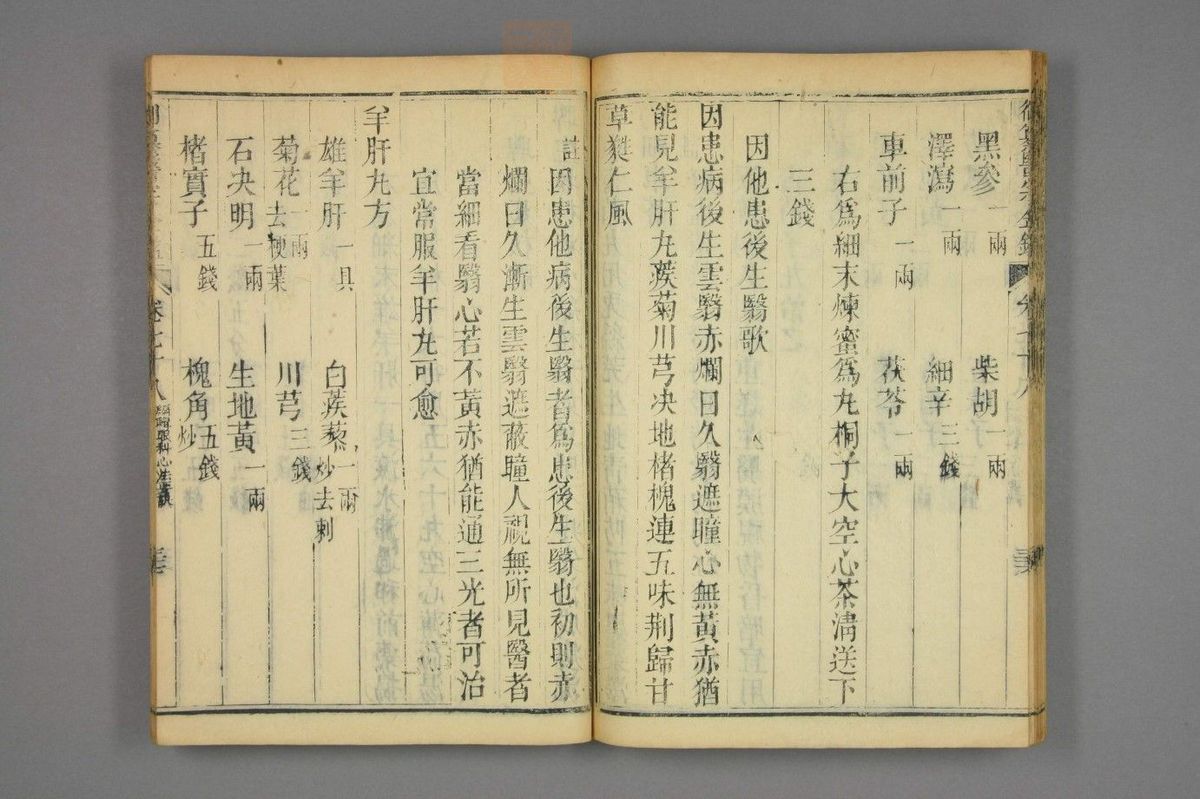 黑參一兩 柴胡一兩
澤瀉一兩 細辛三錢
車前子一兩 茯苓一兩
右爲細末煉蜜爲丸桐子大空心茶淸送下
三錢
因他患後生翳歌
因患病後生雲翳赤爛日久翳遮瞳心無黃赤猶
能見羊肝丸蒺菊川芎決地楮槐連五味荆歸甘
草蕤仁風
註因患他病後生翳者爲患後生翳也初則赤
爛日久漸生雲翳遮蔽瞳人視無所見醫者
當細看翳心若不黃赤猶能通三光者可治
宜常服羊肝丸可愈
羊肝丸方
雄羊肝一具 白蒺藜一兩炒去刺
菊花一兩去梗葉 川芎三錢
石決明一兩 生地黃一兩
楮實子五錢 槐角五錢炒
卷七十八